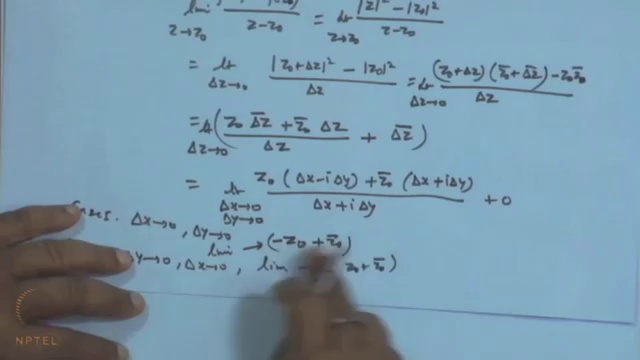 lim z→z₀ z-z₀ = lt z→z₀ |z|²-|z₀|² / z-z₀
= lt Δz→0 |z₀+Δz|²-|z₀|² / Δz = lt Δz→0 (z₀+Δz)(z̄₀+Δ̄z̄)-z₀z̄₀ / Δz
= lt Δz→0 (z₀ Δ̄z̄+z̄₀ Δz / Δz + Δ̄z̄)
= lt Δx→0 Δy→0 z₀(Δx-iΔy)+z̄₀(Δx+iΔy) / Δx+iΔy +0
Case I. Δx→0, Δy→0
lim →(-z₀+z̄₀)
Δy→0, Δx→0, lim z₀+z̄₀)
NPTEL